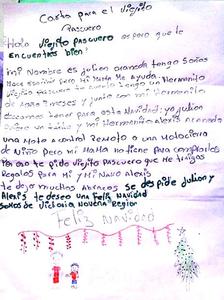 Carta para el viejito
Pascuero
Hola viejito Pascuero espero que te
encuentres bien?
mi nombre es julian araneda tengo 5años
Hace escribir pero Mi MaMa Me Ayuda.
viejito pascuero te cuento tengo un Hermanito
de Meses y junto con mi Hermanito
deseamos tener para esta Navidad: yo julian
quiero un y mi Hermanito Alexis Araneda
una Moto a control Remoto o una Motocicleta
de Niño Pero Mi MaMa No tiene para comprarlos
Por eso te pido viejito Pascuero que Me traigas
Regalos para Mi y Mi Nano Alexis
te dejo muchos Abrazos se despide julian y
Alexis te deseo una Feliz Navidad
Somos de Victoria Novena Region
Feliz NAVIDAD